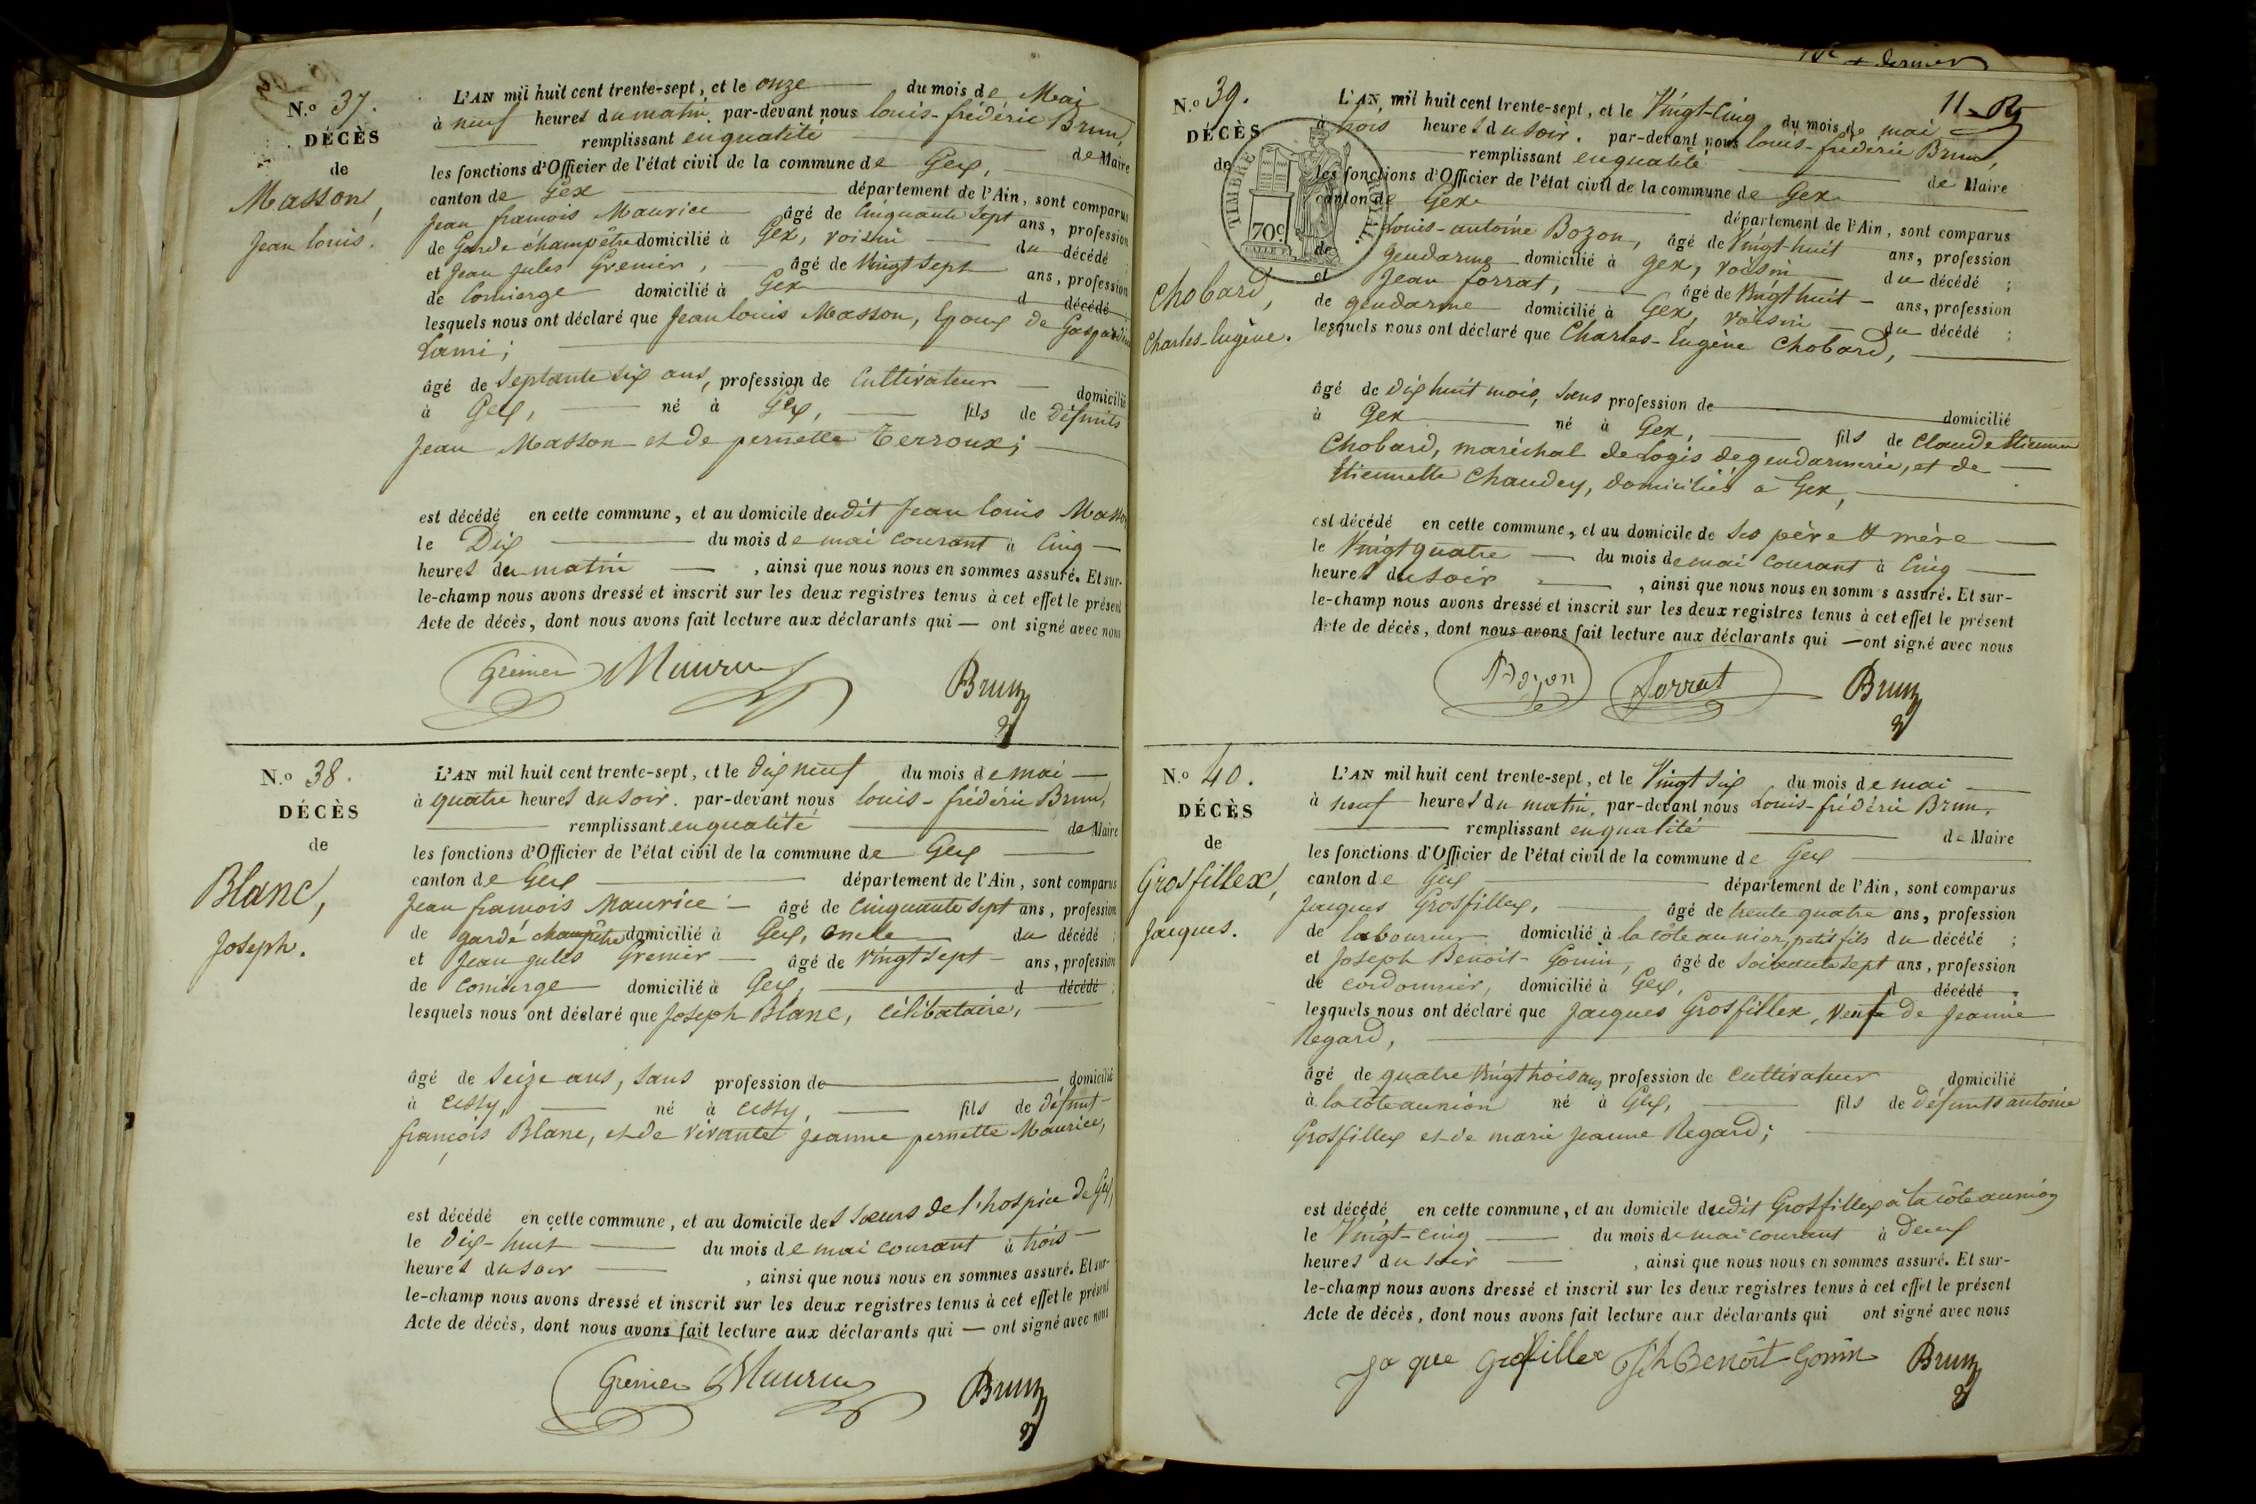 N.o 37.
DÉCÈS
de
Masson,
Jean louis.
L'AN mil huit cent trente-sept, et le onze du mois de Mai
à neuf heures du matin, par-devant nous louis-frédéric Brun,
remplissant en qualité de Maire
les fonctions d'Officier de l'état civil de la commune de Gex,
canton de Gex département de l'Ain, sont comparus
Jean françois Maurice âgé de Cinquante Sept ans, profession
de Garde champêtre domicilié à Gex, voisin du décédé
et Jean Jules Grenier, âgé de Vingt sept ans, profession
de Concierge domicilié à Gex d décédé
lesquels nous ont déclaré que Jean louis Masson, Epoux de Gaspardine
Lami;
âgé de Septante six ans, profession de Cultivateur domicilié
à Gex, né à Gex, fils de défunts
Jean Masson et de pernette Terroux;
est décédé en cette commune, et au domicile dudit Jean louis Masson
le Dix du mois de mai courant à Cinq
heures du matin, ainsi que nous nous en sommes assuré. Et sur-
le-champ nous avons dressé et inscrit sur les deux registres tenus à cet effet le présent
Acte de décès, dont nous avons fait lecture aux déclarants qui — ont signé avec nous
Grenier Maurice Brun
N.o 38.
DÉCÈS
de
Blanc,
Joseph.
L'AN mil huit cent trente-sept, et le dix neuf du mois de mai
à quatre heures du soir. par-devant nous louis-frédéric Brun,
remplissant en qualité de Maire
les fonctions d'Officier de l'état civil de la commune de Gex
canton de Gex département de l'Ain, sont comparus
Jean françois Maurice âgé de Cinquante sept ans, profession
de garde champêtre domicilié à Gex, oncle du décédé ;
et Jean Jules Grenier âgé de Vingt sept ans, profession
de Concierge domicilié à Gex, d décédé ;
lesquels nous ont déclaré que Joseph Blanc, célibataire,
âgé de Seize ans, sans profession de domicilié
à Cessy, né à Cessy, fils de défunt
françois Blanc, et de vivante Jeanne pernette Maurice,
est décédé en cette commune, et au domicile des sœurs de l'hospice de Gex,
le dix-huit du mois de mai courant à trois
heures du soir, ainsi que nous nous en sommes assuré. Et sur-
le-champ nous avons dressé et inscrit sur les deux registres tenus à cet effet le présent
Acte de décès, dont nous avons fait lecture aux déclarants qui — ont signé avec nous
Grenier Maurice Brun
dernier
11
N.o 39.
DÉCÈS
de
TIMBRE ROYAL.
70c
Chobard,
Charles-Eugène.
L'AN mil huit cent trente-sept, et le Vingt-Cinq du mois de mai
à trois heures du soir. par-devant nous louis-frédéric Brun,
remplissant en qualité de Maire
les fonctions d'Officier de l'état civil de la commune de Gex
canton de Gex département de l'Ain, sont comparus
Louis-antoine Bozon, âgé de Vingt-huit ans, profession
de gendarme domicilié à Gex, voisin du décédé ;
et Jean forrat, âgé de Vingt huit ans, profession
de gendarme domicilié à Gex, voisin du décédé ;
lesquels nous ont déclaré que Charles-Eugène Chobard,
âgé de dix huit mois, sans profession de domicilié
à Gex né à Gex, fils de Claude Etienne
Chobard, maréchal de logis de gendarmerie, et de
Etiennette Chaudey, domiciliés à Gex,
est décédé en cette commune, et au domicile de ses père et mère
le Vingt quatre du mois de mai courant à Cinq
heures du soir, ainsi que nous nous en somm s assuré. Et sur-
le-champ nous avons dressé et inscrit sur les deux registres tenus à cet effet le présent
Acte de décès, dont nous avons fait lecture aux déclarants qui — ont signé avec nous
Bozon Forrat Brun
N.o 40.
DÉCÈS
de
Grosfillex,
Jacques.
L'AN mil huit cent trente-sept, et le Vingt six du mois de mai
à neuf heures du matin, par-devant nous Louis-frédéric Brun,
remplissant en qualité de Maire
les fonctions d'Officier de l'état civil de la commune de Gex
canton de Gex département de l'Ain, sont comparus
Jacques Grosfillex, âgé de trente quatre ans, profession
de laboureur domicilié à la côte aunion, petit fils du décédé ;
et Joseph Benoit Gonin, âgé de Soixante sept ans, profession
de cordonnier, domicilié à Gex, d décédé
lesquels nous ont déclaré que Jacques Grosfillex, Veuf de Jeanne
Regard,
âgé de quatre Vingt trois ans profession de cultivateur domicilié
à la côte aunion né à Gex, fils de défunts antoine
Grosfillex et de marie Jeanne Regard;
est décédé en cette commune, et au domicile dudit Grosfillex à la côte aunion
le Vingt-cinq du mois de mai courant à deux
heures du soir, ainsi que nous nous en sommes assuré. Et sur-
le-champ nous avons dressé et inscrit sur les deux registres tenus à cet effet le présent
Acte de décès, dont nous avons fait lecture aux déclarants qui ont signé avec nous
Ja que Grofillex Jph Benoît Gonin Brun